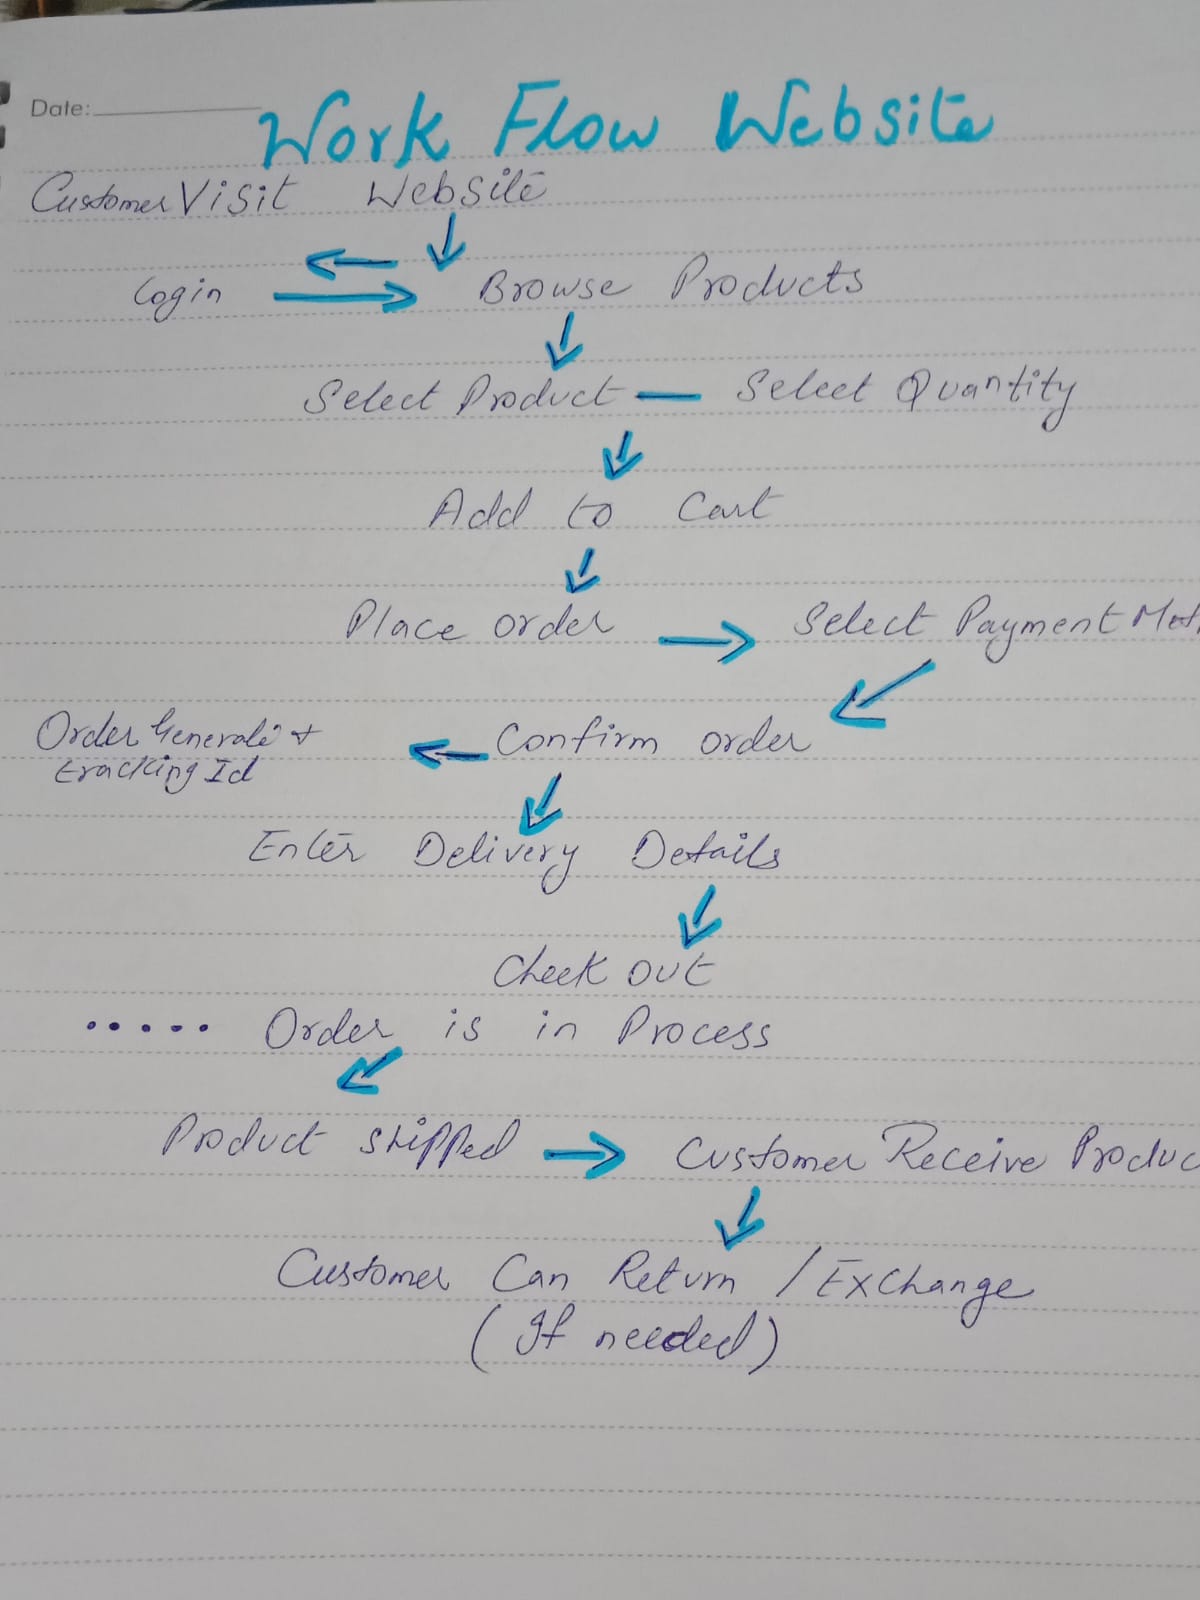 Date:
Work Flow Website
Customer Visit Website
Login Browse Products
Select Product — Select Quantity
Add to Cart
Place order Select Payment Met
Order Generate + Confirm order
tracking Id
Enter Delivery Details
Check out
..... Order is in Process
Product shipped Customer Receive Produc
Customer Can Return / Exchange
(If needed)